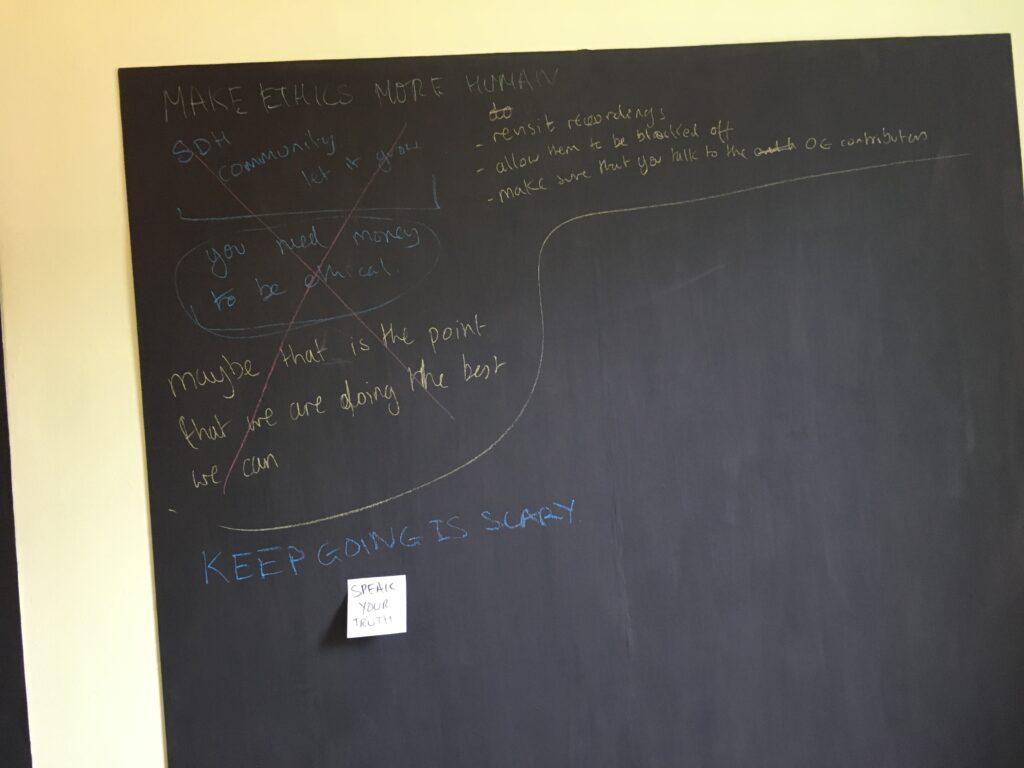 MAKE ETHICS MORE HUMAN
SDH
community
let it grow
you need money
to be ethical.
maybe that is the point
that we are doing the best
we can
- revisit recordings
- allow them to be blocked off
- make sure that you talk to the OG contributors
KEEP GOING IS SCARY
SPEAK
YOUR
TRUTH